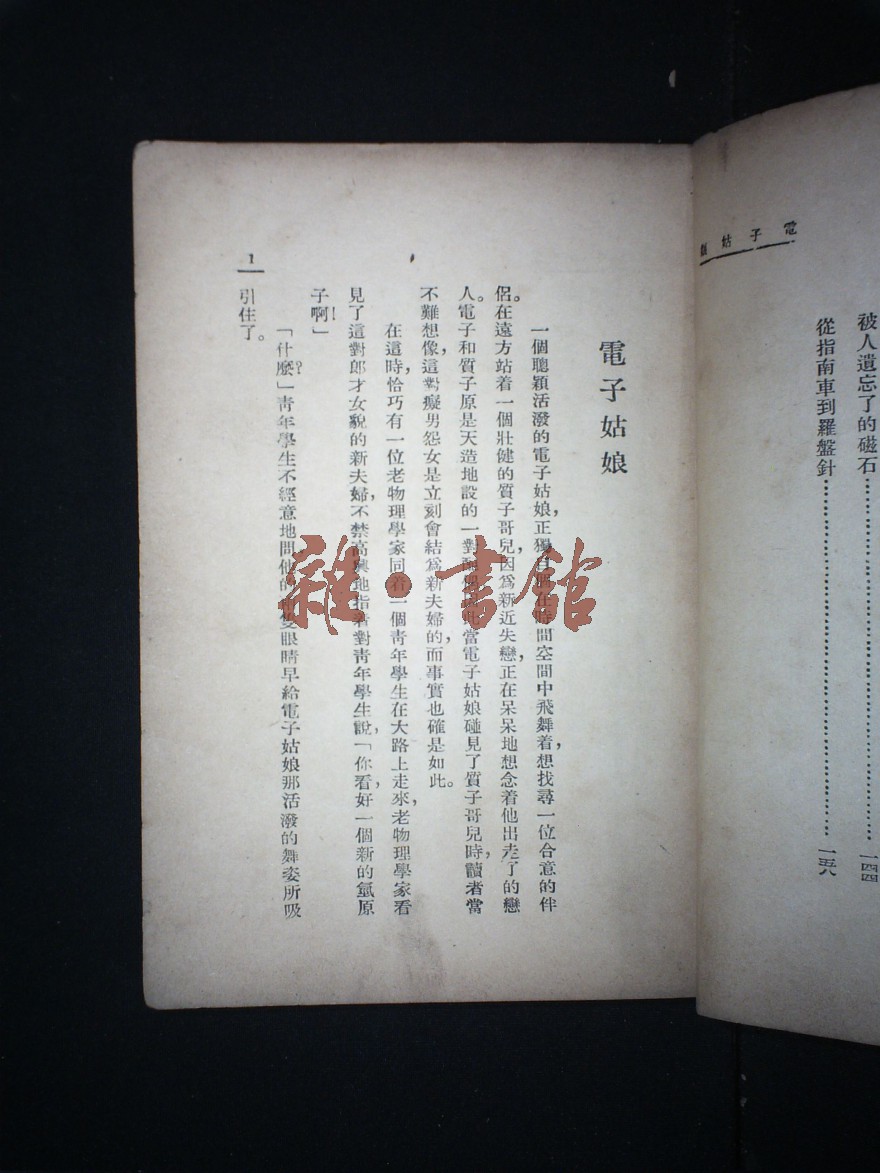 電子姑娘
被人遺忘了的磁石……………………一四四
從指南車到羅盤針……………………一五八
電子姑娘
一個聰穎活潑的電子姑娘，正獨自在時間空間中飛舞着，想找尋一位合意的伴
侶。在遠方站着一個壯健的質子哥兒，因爲新近失戀，正在呆呆地想念着他出走了的戀
人。電子和質子原是天造地設的一對，當電子姑娘碰見了質子哥兒時，讀者當
不難想像，這對癡男怨女是立刻會結爲新夫婦的，而事實也確是如此。
在這時，恰巧有一位老物理學家同着一個靑年學生在大路上走來，老物理學家看
見了這對郎才女貌的新夫婦，不禁高興地指着對靑年學生說，「你看，好一個新的氫原
子啊！」
「什麼？」靑年學生不經意地問，他的兩隻眼睛早給電子姑娘那活潑的舞姿所吸
引住了。
1
雜·書館